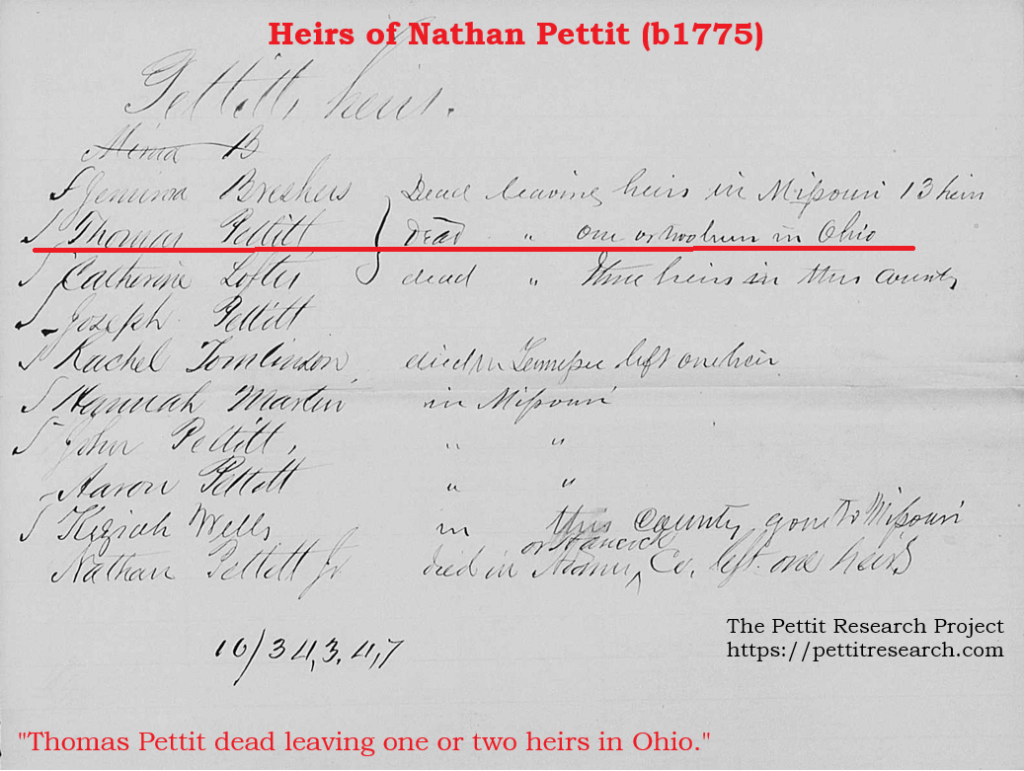 Heirs of Nathan Pettit (b1775)
Pettitt heirs.
Mima B
S Jemima Breshers Dead leaving heirs in Missouri 13 heirs
S Thomas Pettitt dead " one or two heirs in Ohio
S Catherine Lofter dead " three heirs in this county
S Joseph Pettitt
S Rachel Tomlinson died in Tennessee left one heir
S Hannah Martin in Missouri
S John Pettitt, " "
Aaron Pettitt " "
S Keziah Wells in this County gone to Missouri
or Hancock
Nathan Pettitt Jr died in Adams ^ Co. left one heirs
10/343.47
The Pettit Research Project
https://pettitresearch.com
"Thomas Pettit dead leaving one or two heirs in Ohio."